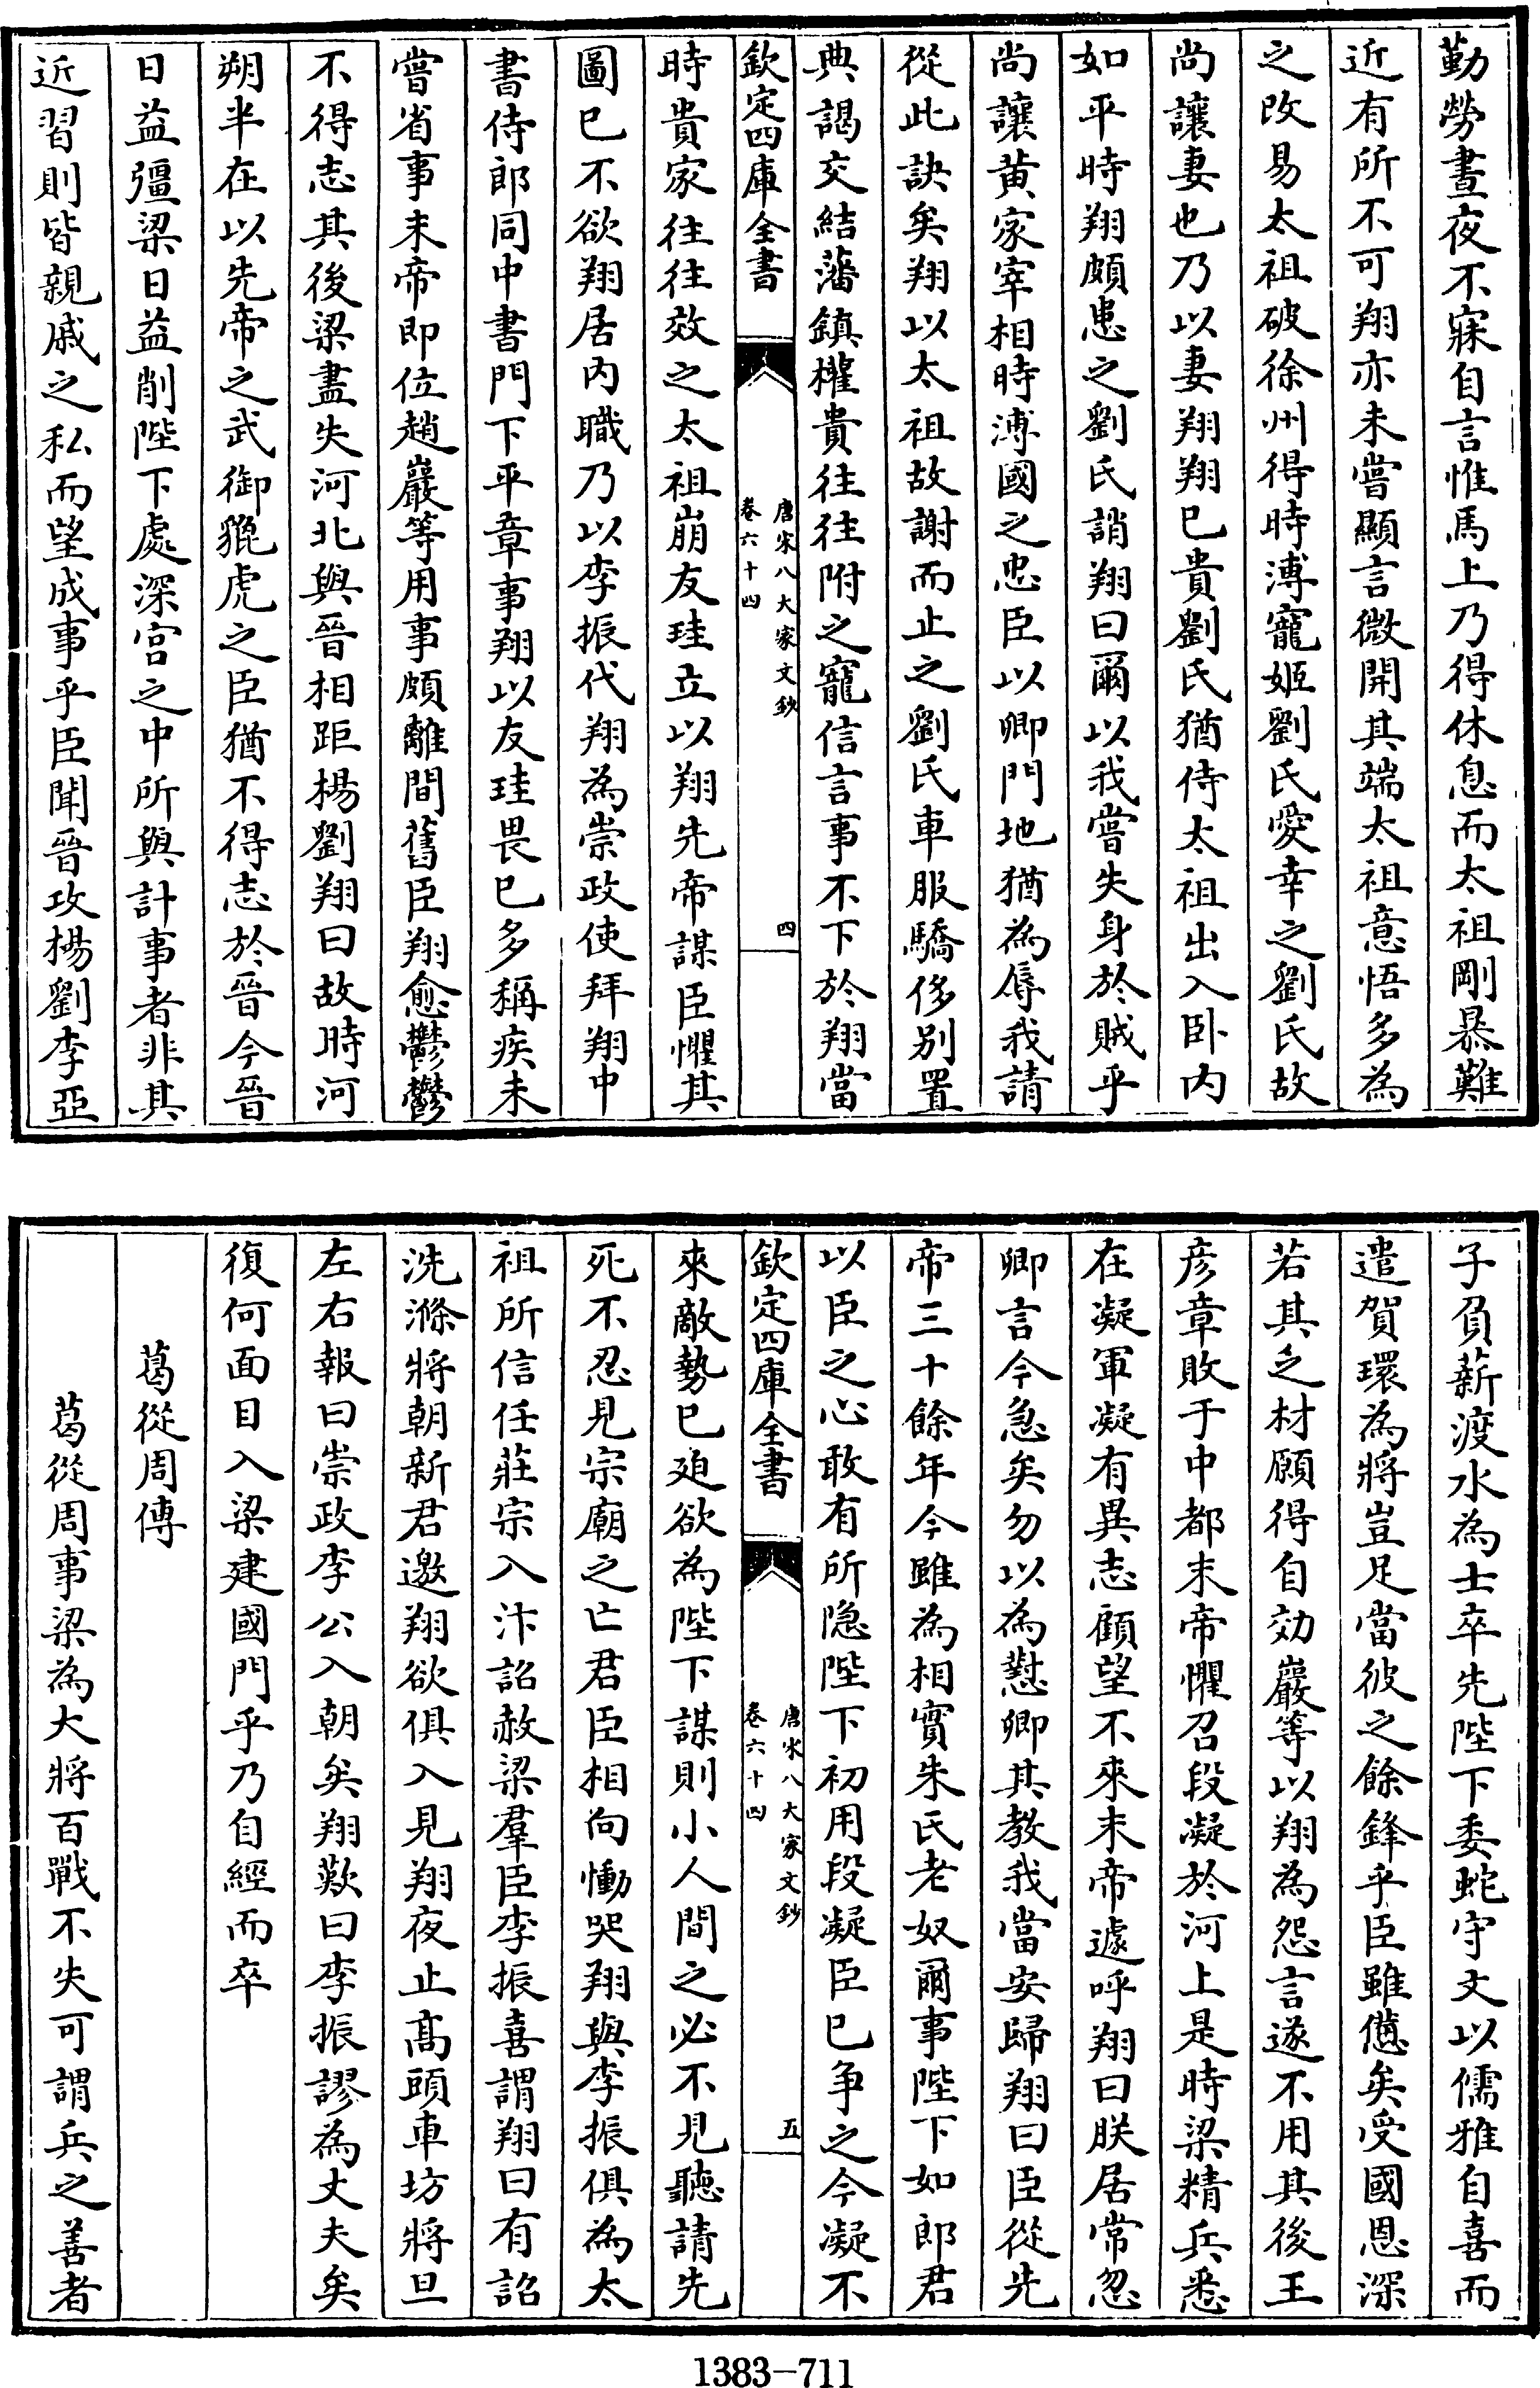 勤勞晝夜不寐自言惟馬上乃得休息而太祖剛暴難
近有所不可翔亦未嘗顯言微開其端太祖意悟多為
之改易太祖破徐州得時溥寵姬劉氏愛幸之劉氏故
尚讓妻也乃以妻翔翔已貴劉氏猶侍太祖出入卧内
如平時翔頗患之劉氏誚翔曰爾以我嘗失身於賊乎
尚讓黄家宰相時溥國之忠臣以卿門地猶為辱我請
從此訣矣翔以太祖故謝而止之劉氏車服驕侈别置
典謁交結藩鎮權貴往往附之寵信言事不下於翔當
欽定四庫全書
唐宋八大家文鈔
卷六十四
四
時貴家往往效之太祖崩友珪立以翔先帝謀臣懼其
圖已不欲翔居内職乃以李振代翔為崇政使拜翔中
書侍郎同中書門下平章事翔以友珪畏已多稱疾未
嘗省事末帝即位趙巖等用事頗離間舊臣翔愈鬱鬱
不得志其後梁盡失河北與晉相距楊劉翔曰故時河
朔半在以先帝之武御貔虎之臣猶不得志於晉今晉
日益彊梁日益削陛下處深宫之中所與計事者非其
近習則皆親戚之私而望成事乎臣聞晉攻楊劉李亞
子負薪渡水為士卒先陛下委蛇守文以儒雅自喜而
遣賀瓌為將豈足當彼之餘鋒乎臣雖憊矣受國恩深
若其乏材願得自効巖等以翔為怨言遂不用其後王
彦章敗于中都末帝懼召段凝於河上是時梁精兵悉
在凝軍凝有異志顧望不來末帝遽呼翔曰朕居常忽
卿言今急矣勿以為懟卿其教我當安歸翔曰臣從先
帝三十餘年今雖為相實朱氏老奴爾事陛下如郎君
以臣之心敢有所隐陛下初用段凝臣已争之今凝不
欽定四庫全書
唐宋八大家文鈔
卷六十四
五
來敵勢已廹欲為陛下謀則小人間之必不見聽請先
死不忍見宗廟之亡君臣相向慟哭翔與李振俱為太
祖所信任莊宗入汴詔赦梁羣臣李振喜謂翔曰有詔
洗滌將朝新君邀翔欲俱入見翔夜止髙頭車坊將旦
左右報曰崇政李公入朝矣翔歎曰李振謬為丈夫矣
復何面目入梁建國門乎乃自經而卒
葛從周傳
葛從周事梁為大將百戰不失可謂兵之善者
1383-711